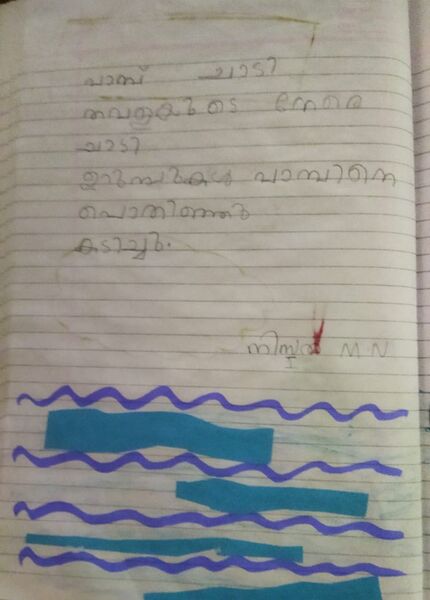 പാമ്പ് ചാടി
തവളകളുടെ നേരെ
ചാടി
ഉറുമ്പുകൾ പാമ്പിനെ
പൊതിഞ്ഞു
കടിച്ചു.
M N